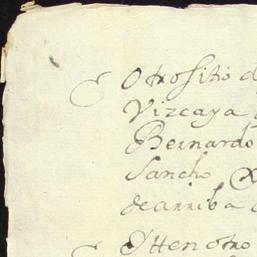 Otro sitio d
Vizcaya
Bernardo
Sancho,
de arriba
Ytten otro